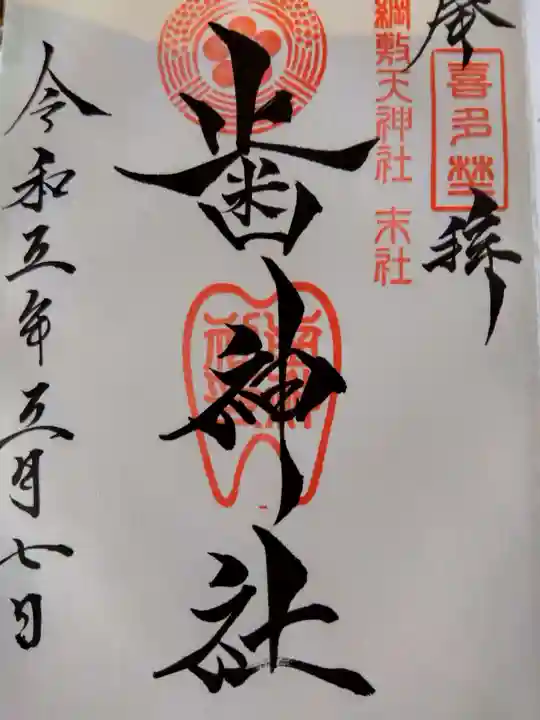 奉拝
喜多埜
綱敷天神社 末社
歯神社
令和五年五月七日